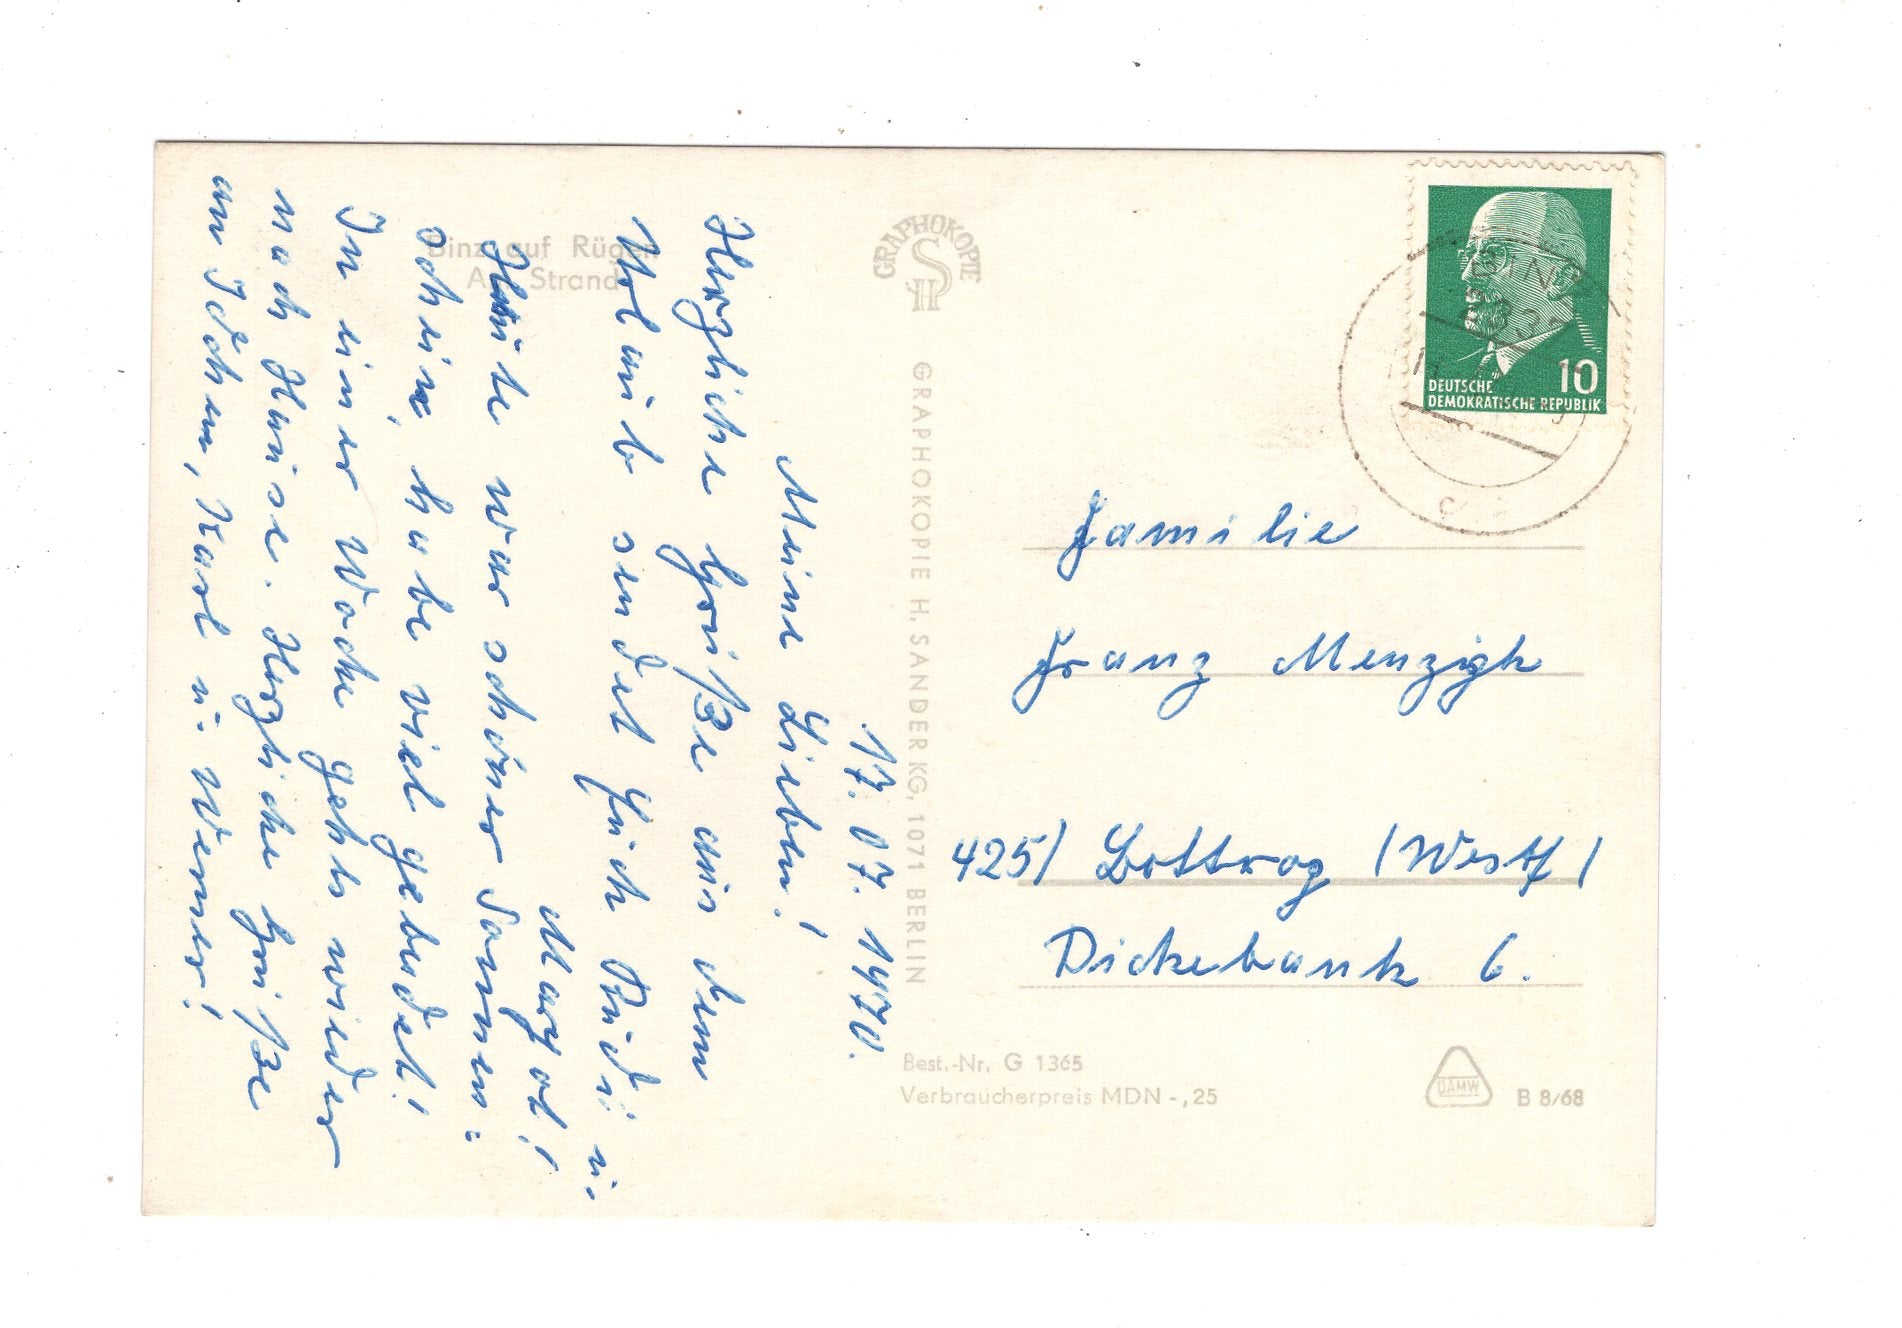 Binz auf Rügen
Am Strand
17. 07. 1970.
Meine Lieben!
Herzliche Grüße aus dem
Urlaub sendet Euch Rudi u.
Margot!
Heute war schöner Sonnen=
schein, habe viel gebadet!
In einer Woche gehts wieder
nach Hause. Herzliche Grüße
an Idchen, Karl u. Werner!
GRAPHOKOPIE
SH
GRAPHOKOPIE H. SANDER KG, 1071 BERLIN
DEUTSCHE
DEMOKRATISCHE REPUBLIK
10
BINZ
Familie
Franz Menzigk
425/ Bottrog (Westf/
Dickebank 6.
Best.-Nr. G 1365
Verbraucherpreis MDN -,25
DAMW
B 8/68